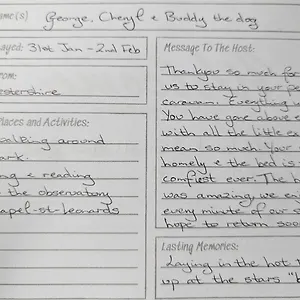 ame(s) George, Cheryl & Buddy the dog
ayed: 31st Jan - 2nd Feb
rom:
estershire
Places and Activities:
walking around
ark.
ng & reading
the observatory
apel-st-leonards
Message To The Host:
Thankyou so much for
us to stay in your pe
caravan. Everything w
You have gone above &
with all the little e
mean so much. Your
homely & the bed is
comfiest ever. The h
was amazing we en
every minute of our s
hope to return soon
Lasting Memories:
Laying in the hot t
up at the stars "b